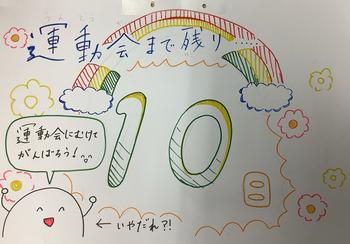 運動会まで残り……
10日
運動会にむけて
がんばろう!
←いやだれ?!